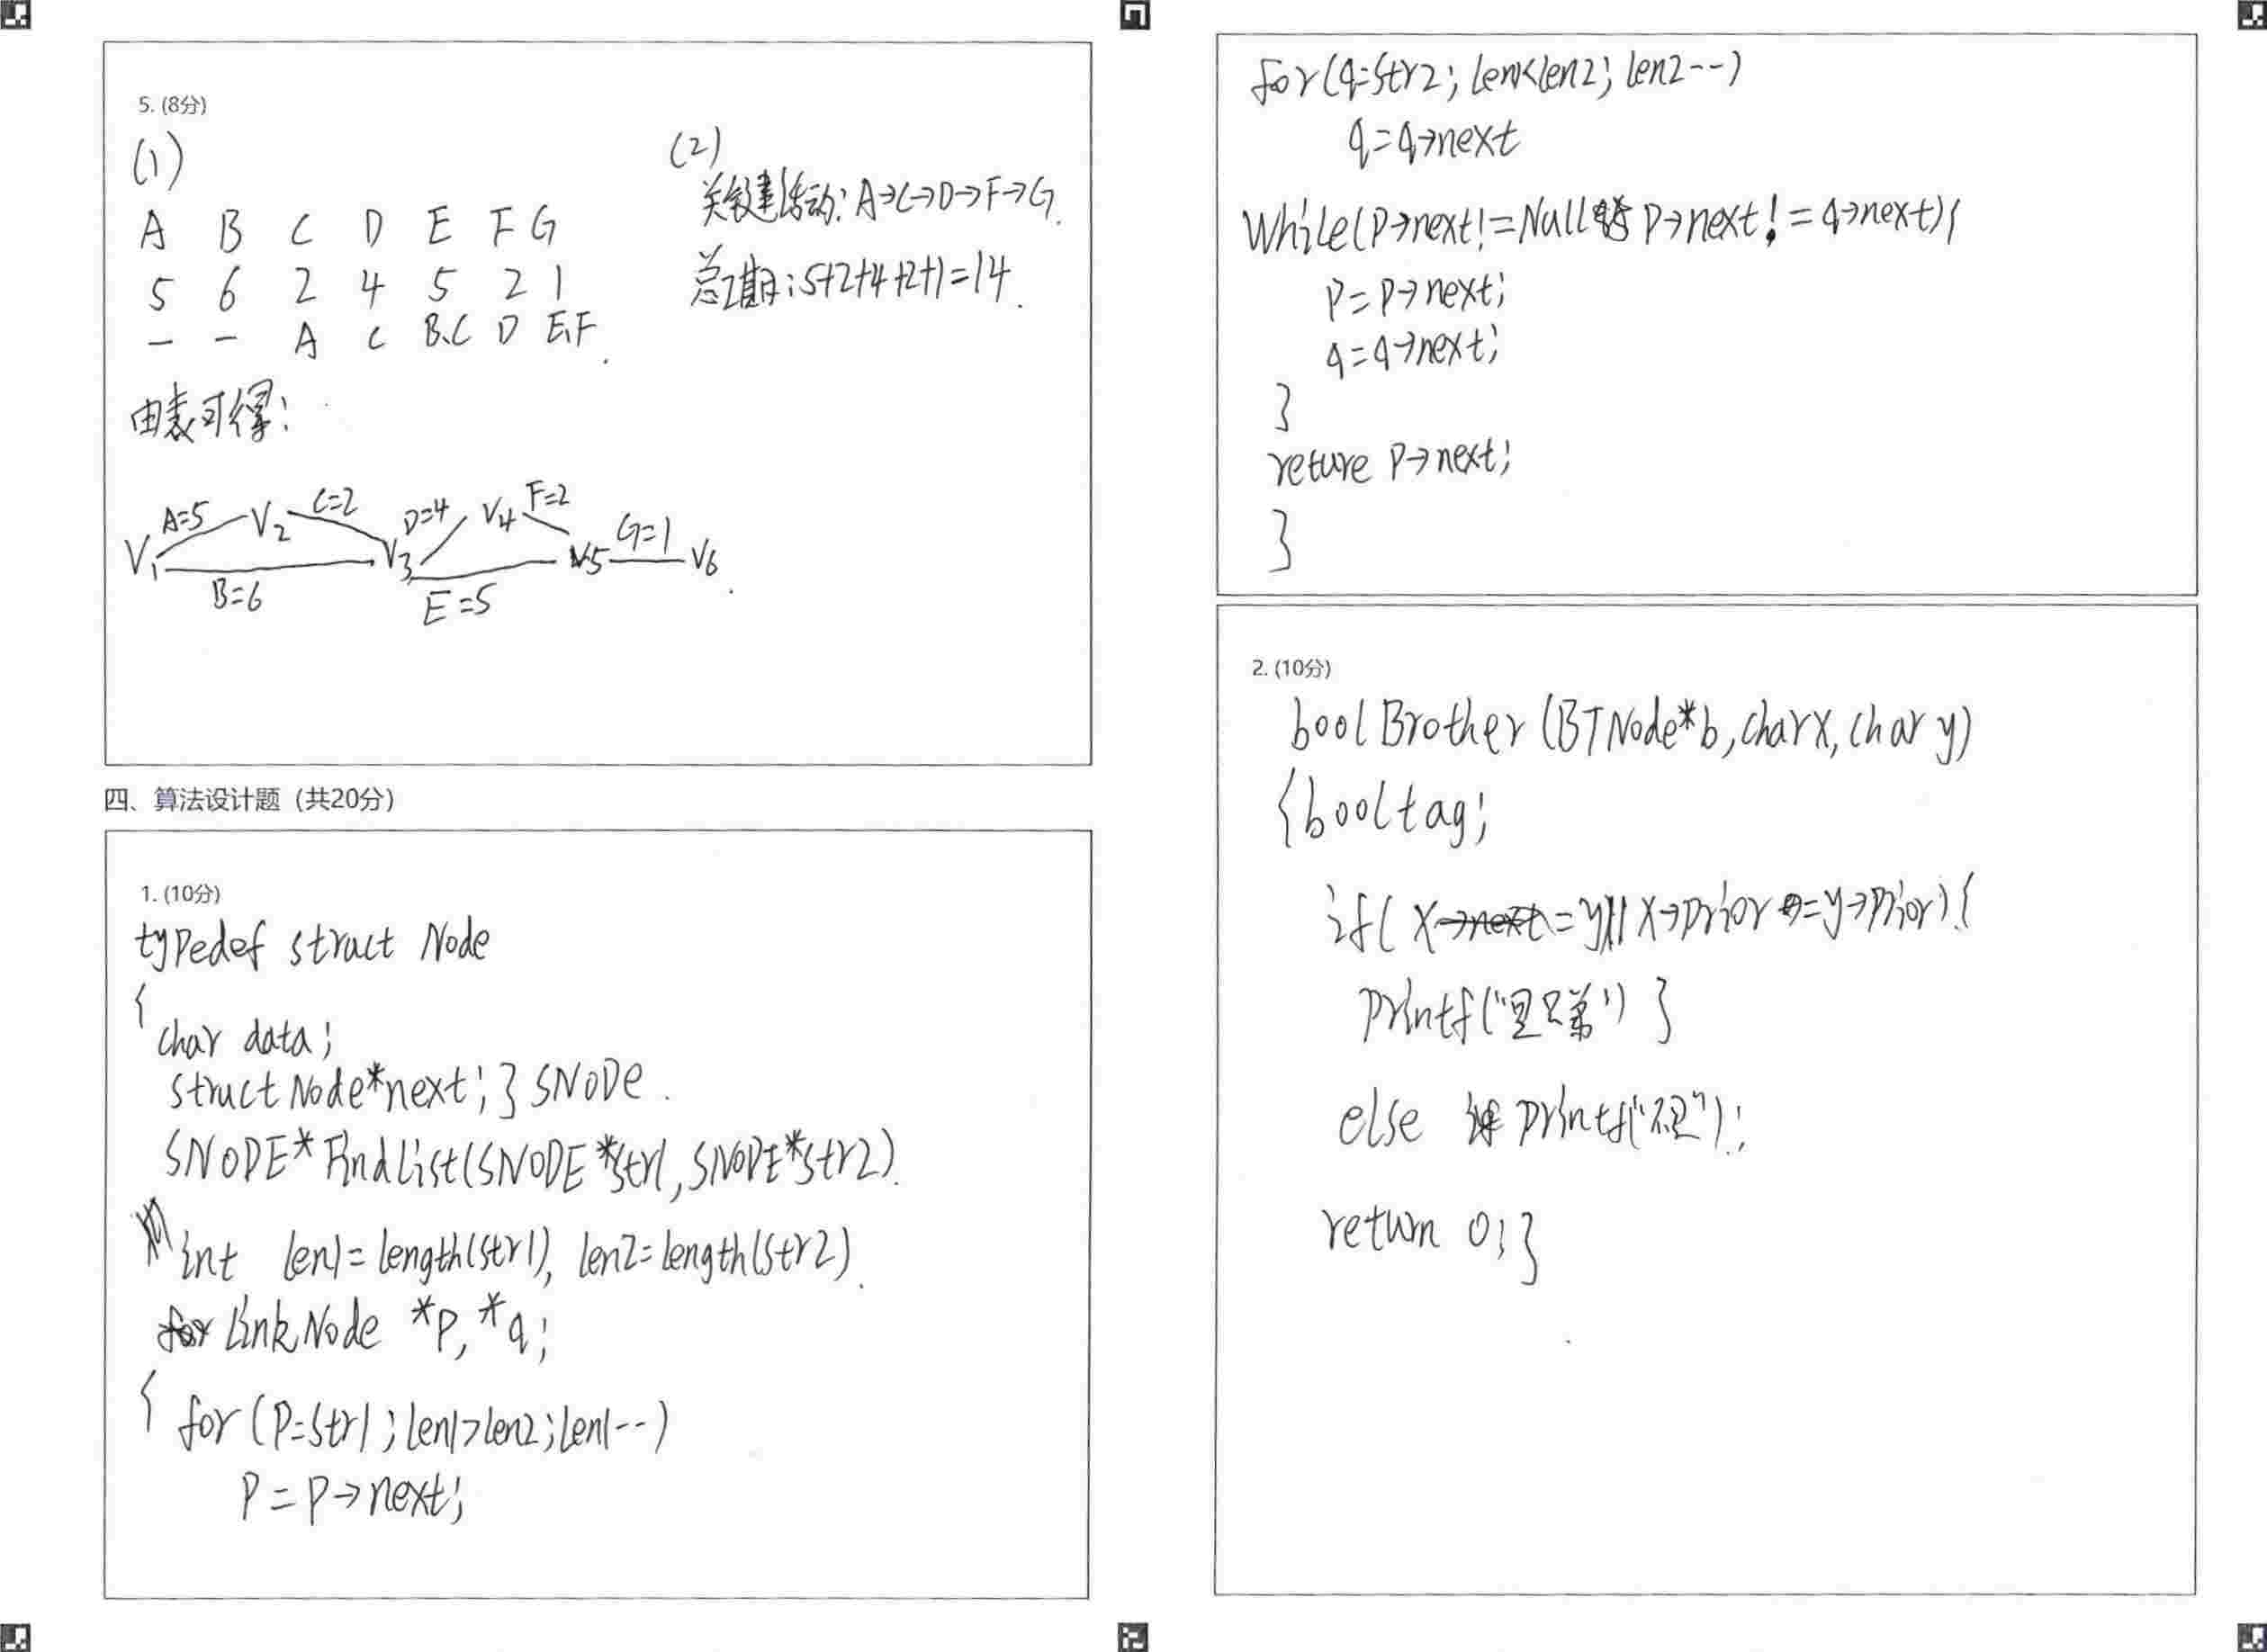 5. (8分)
(1)
A B C D E F G
5 6 2 4 5 2 1
— — A C B.C D E,F.
由表可得:
V1 A=5 V2 C=2 V3 D=4 V4 F=2 V5 G=1 V6
B=6 E=5
(2)
关键活动: A→C→D→F→G.
总工期: 5+2+4+2+1=14.
四、算法设计题（共20分）
1. (10分)
typedef struct Node
{
char data;
struct Node*next; } SNODe.
SNODE* FindList(SNODE *str1, SNODE*str2).
int len1=length(str1), len2=length(str2).
LinkNode *p, *q;
{ for (p=str1; len1>len2; len1--)
p=p→next;
for(q=str2; len1<len2; len2--)
q=q→next
while(p→next!=Null && p→next!=q→next){
p=p→next;
q=q→next;
}
reture p→next;
}
2. (10分)
bool Brother (BTNode*b, char x, char y)
{bool tag;
if( x→prior==y→prior){
printf("是兄弟") }
else printf("不是");
return 0; }